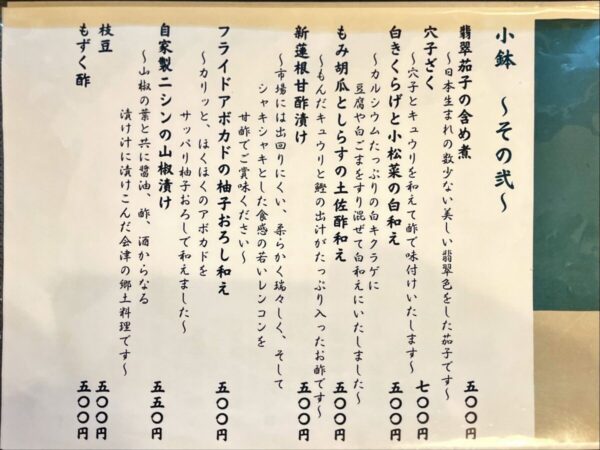 小鉢　〜その弐〜
翡翠茄子の含め煮　五〇〇円
〜日本生まれの数少ない美しい翡翠色をした茄子です〜
穴子ざく　七〇〇円
〜穴子とキュウリを和えて酢で味付けいたします〜
白きくらげと小松菜の白和え　五〇〇円
〜カルシウムたっぷりの白キクラゲに
豆腐や白ごまをすり混ぜて白和えにいたしました〜
もみ胡瓜としらすの土佐酢和え　五〇〇円
〜もんだキュウリと鰹の出汁がたっぷり入ったお酢です〜
新蓮根甘酢漬け　五〇〇円
〜市場には出回りにくい、柔らかく瑞々しく、そして
シャキシャキとした食感の若いレンコンを
甘酢でご賞味ください〜
フライドアボカドの柚子おろし和え　五〇〇円
〜カリッと、ほくほくのアボカドを
サッパリ柚子おろしで和えました〜
自家製ニシンの山椒漬け　五五〇円
〜山椒の葉と共に醤油、酢、酒からなる
漬け汁に漬けこんだ会津の郷土料理です〜
枝豆　五〇〇円
もずく酢　五〇〇円